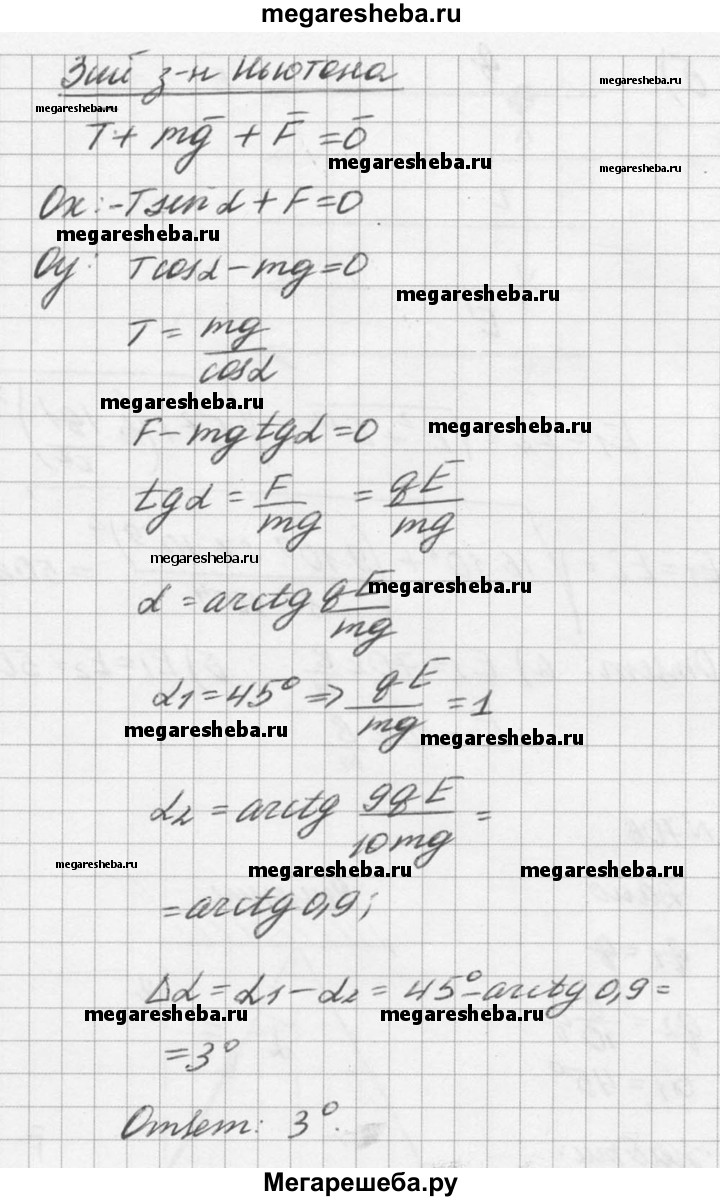 megaresheba.ru
3ий з-н Ньютона
megaresheba.ru
megaresheba.ru
T + mg̅ + F̅ = 0̅
megaresheba.ru
megaresheba.ru
Ox: -T sin α + F = 0
megaresheba.ru
Oy: T cos α - mg = 0
megaresheba.ru
T = mg / cos α
megaresheba.ru
F - mg tg α = 0
megaresheba.ru
tg α = F / mg = qE / mg
megaresheba.ru
α = arctg qE / mg
megaresheba.ru
α1 = 45° ⇒ qE / mg = 1
megaresheba.ru
megaresheba.ru
α2 = arctg 9qE / 10mg =
megaresheba.ru
megaresheba.ru
megaresheba.ru
= arctg 0,9;
Δα = α1 - α2 = 45° - arctg 0,9 =
megaresheba.ru
megaresheba.ru
= 3°
Ответ: 3°.
Мегарешеба.ру